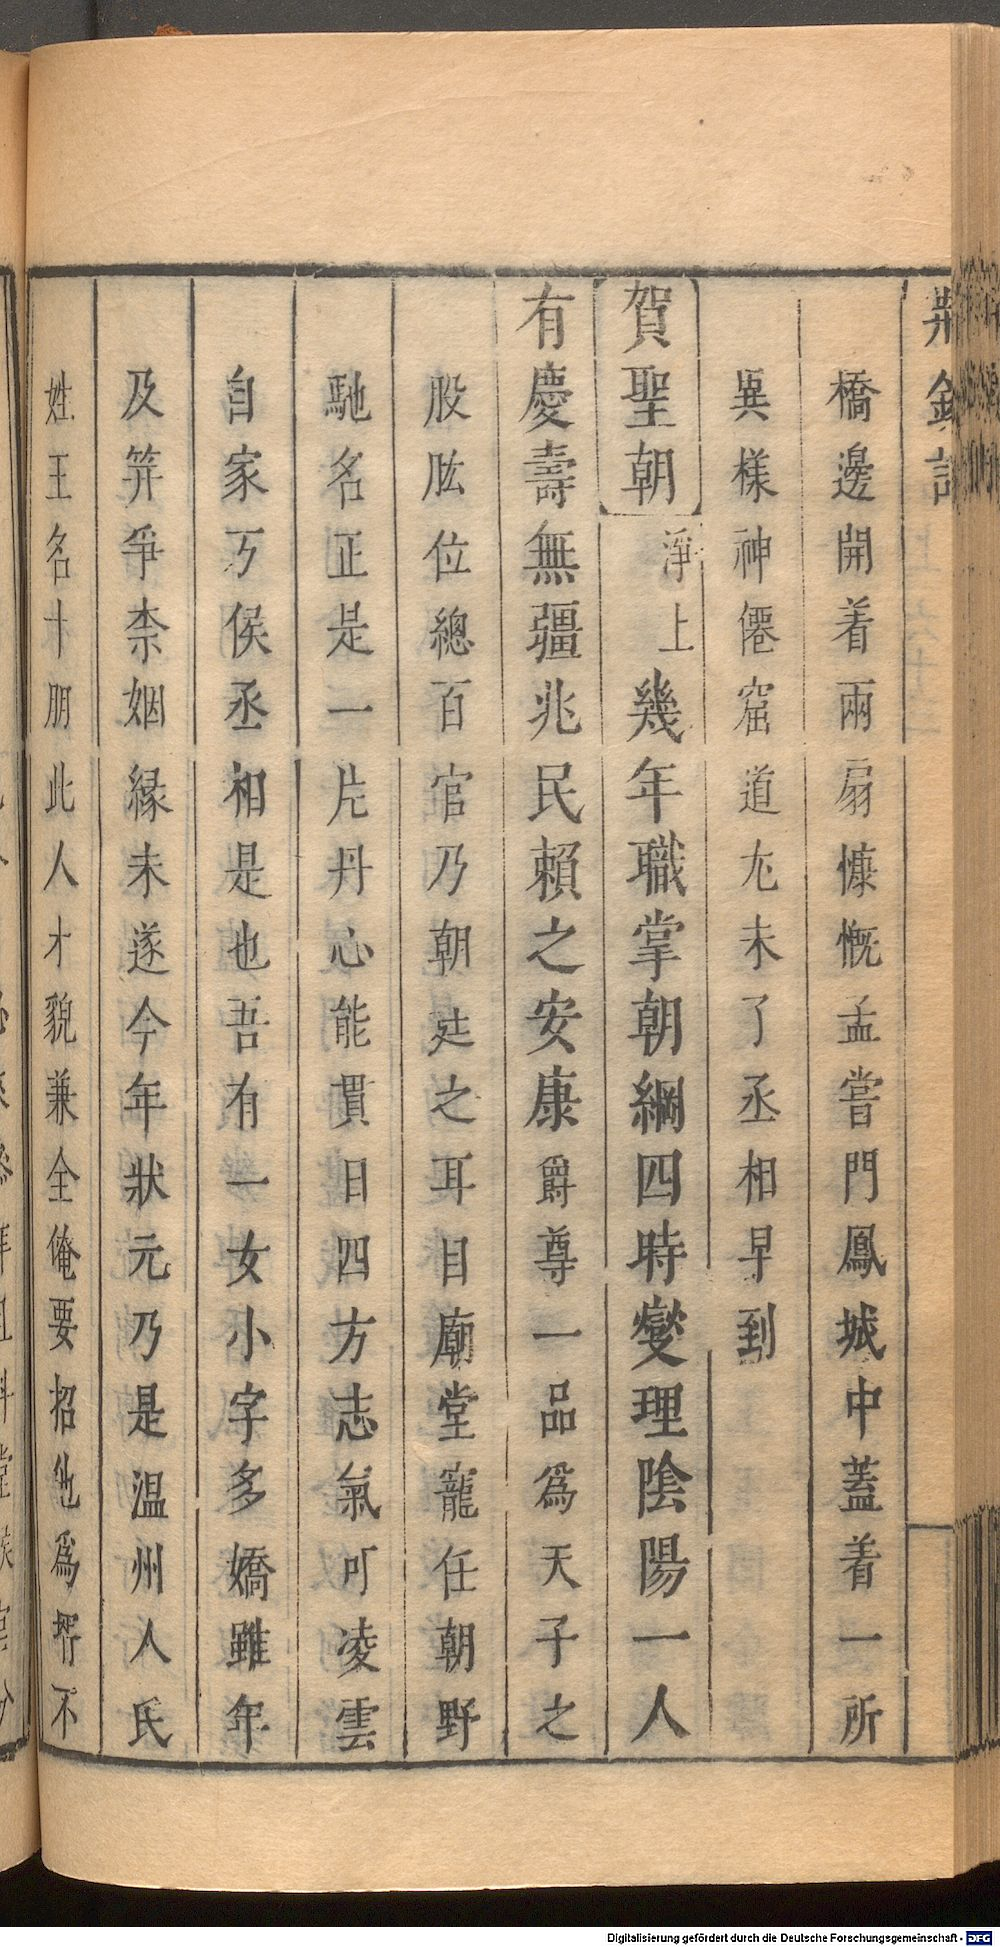 荆釵記
橋邊開着兩扇慷慨孟嘗門鳳城中蓋着一所
異樣神僊窟道尤未了丞相早到
賀聖朝淨上幾年職掌朝綱四時燮理陰陽一人
有慶壽無疆兆民賴之安康爵尊一品為天子之
股肱位總百官乃朝廷之耳目廟堂寵任朝野
馳名正是一片丹心能貫日四方志氣可凌雲
自家万俟丞相是也吾有一女小字多嬌雖年
及笄爭柰姻緣未遂今年狀元乃是温州人氏
姓王名十朋此人才貌兼全俺要招他爲壻不
Digitalisierung gefördert durch die Deutsche Forschungsgemeinschaft - DFG